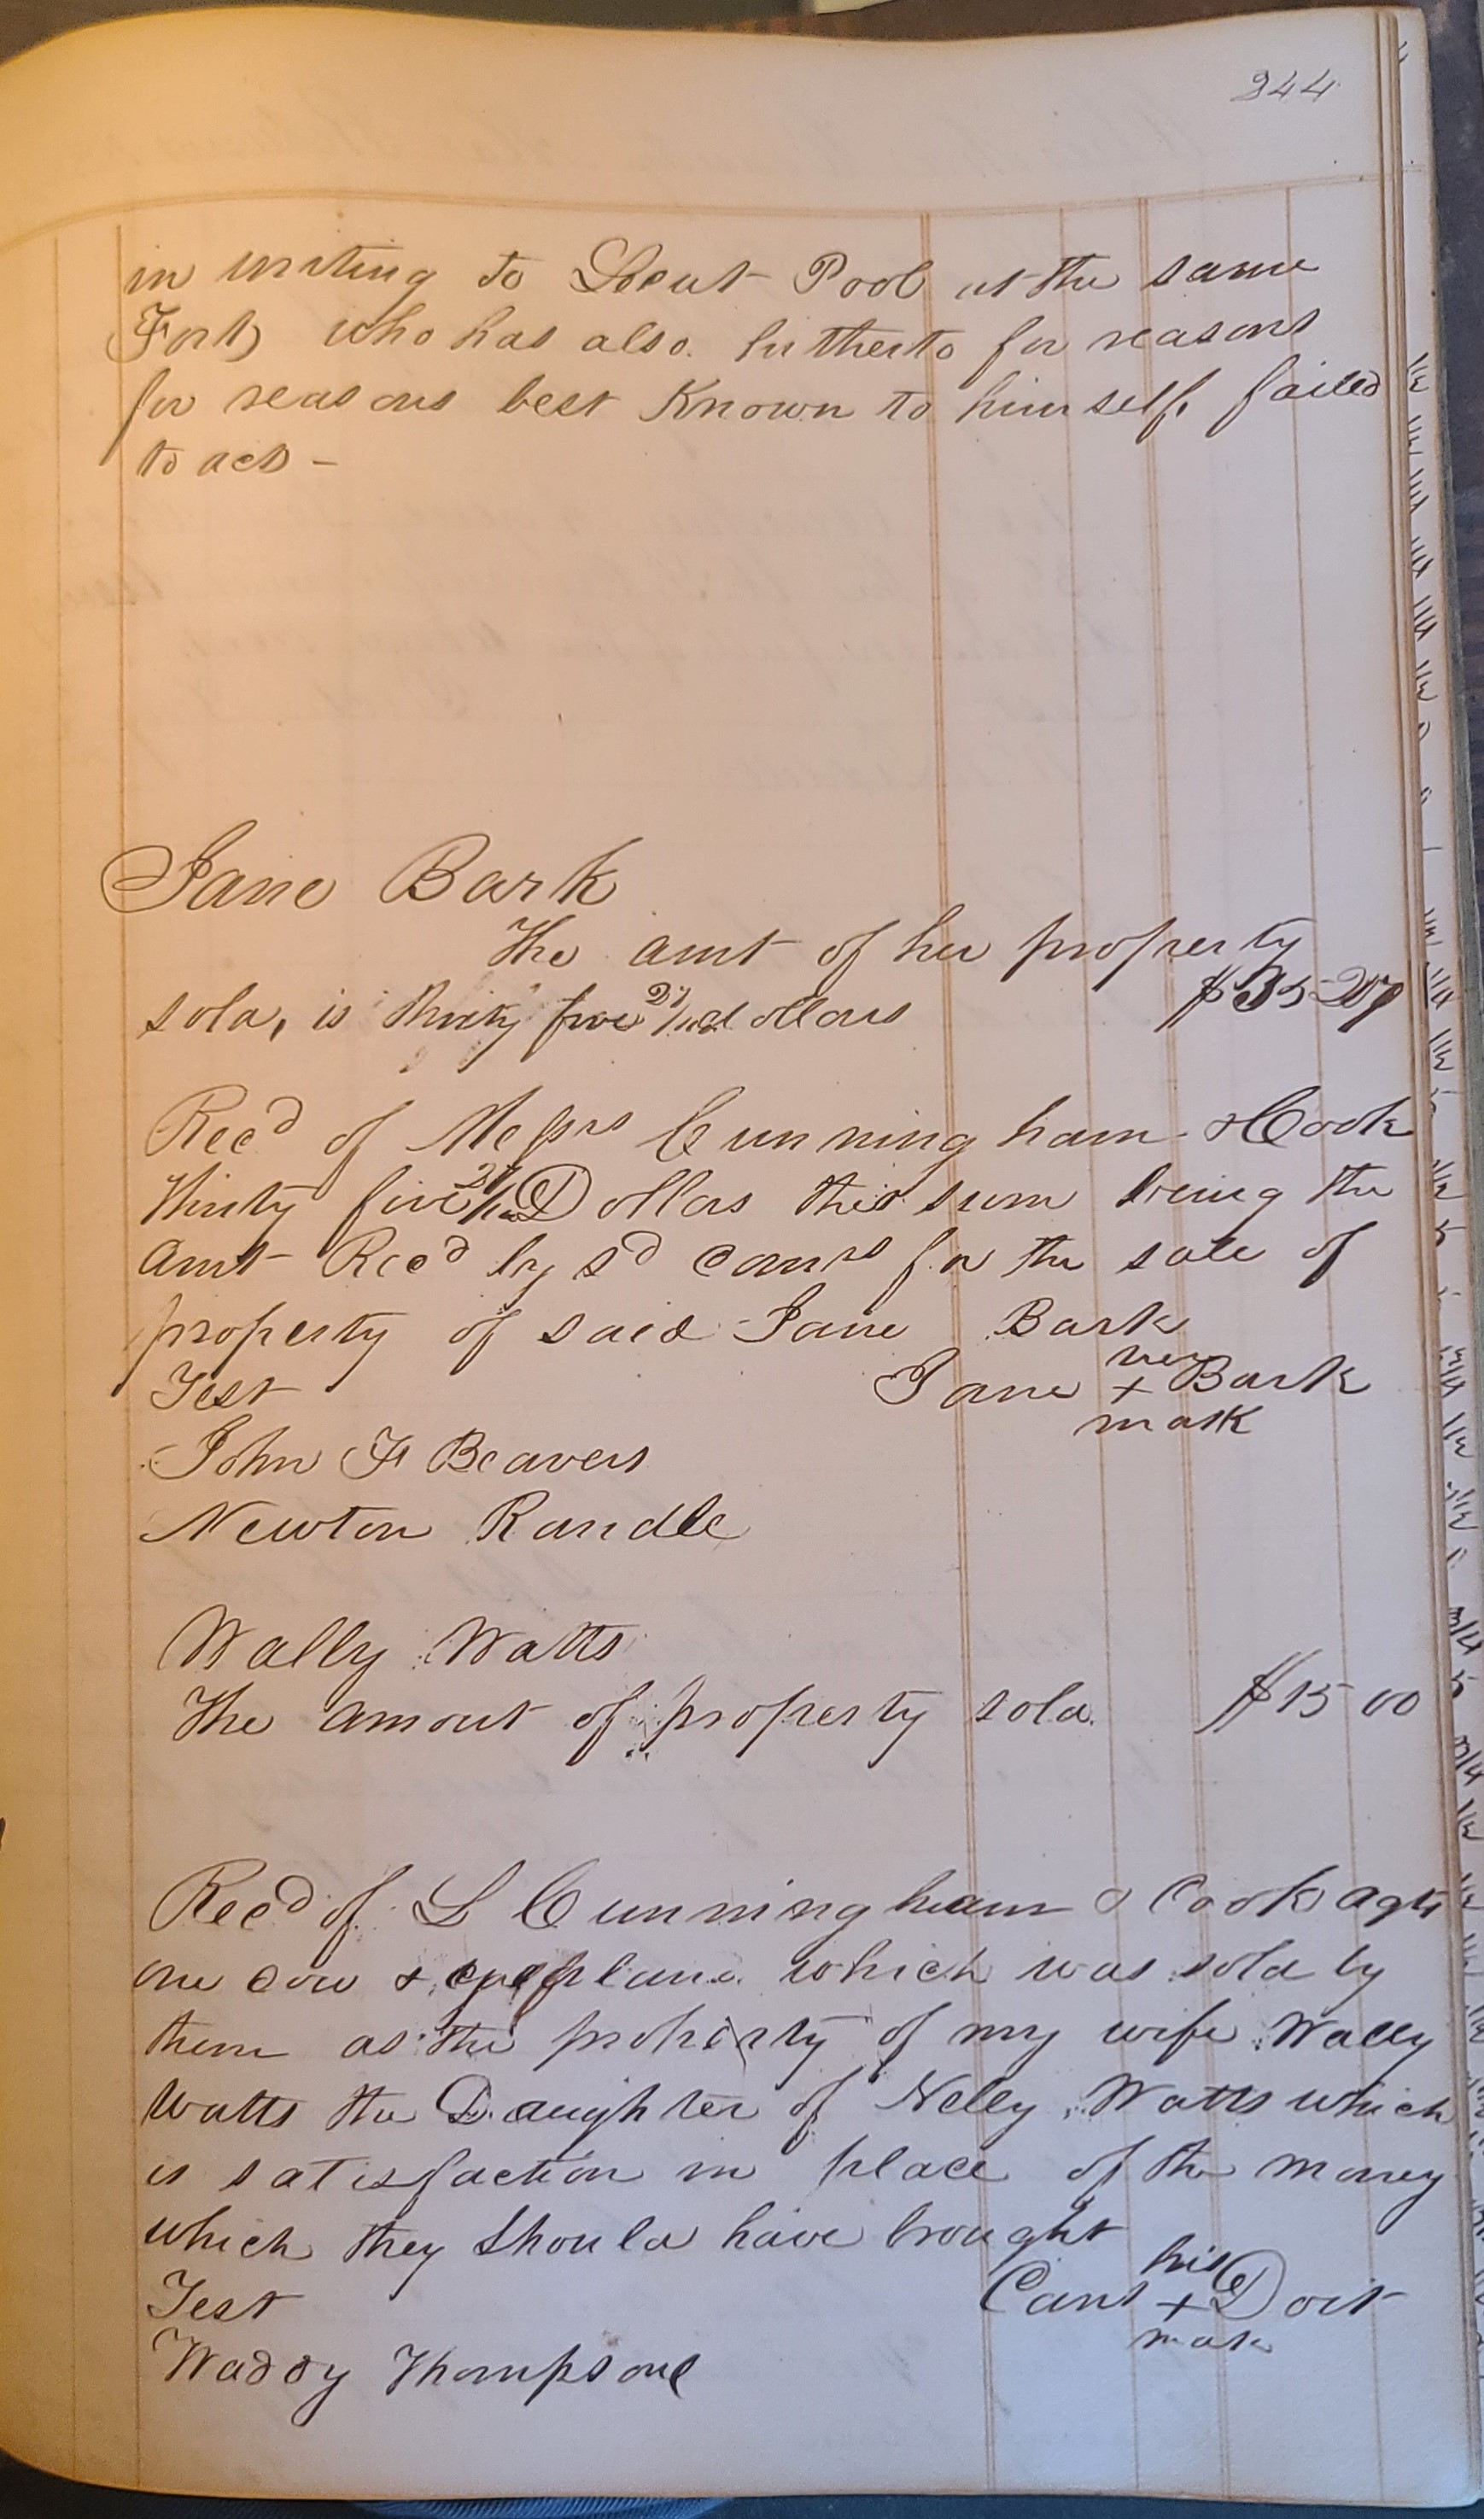 244
in writing to Lieut Pool at the same
Fort, who has also hitherto for reasons
for reasons best Known to himself, failed
to act -
Jane Bark
The amt of her property
sold, is thirty five 27/100 dollars $35-27
Recd of Messrs Cunningham & Cook
thirty five 27/100 Dollars this sum being the
amt Recd by sd comrs for the sale of
property of said Jane Bark
Test Jane her + mark Bark
John F Beavers
Newton Randle
Wally Watts
The amount of property sold. $15 00
Recd of L Cunningham & Cook agts
one cow & which was sold by
them as the property of my wife Wally
Watts the Daughter of Nelly Watts which
is satisfaction in place of the money
which they should have brought
Test Cant his + mark Doit
Waddy Thompson